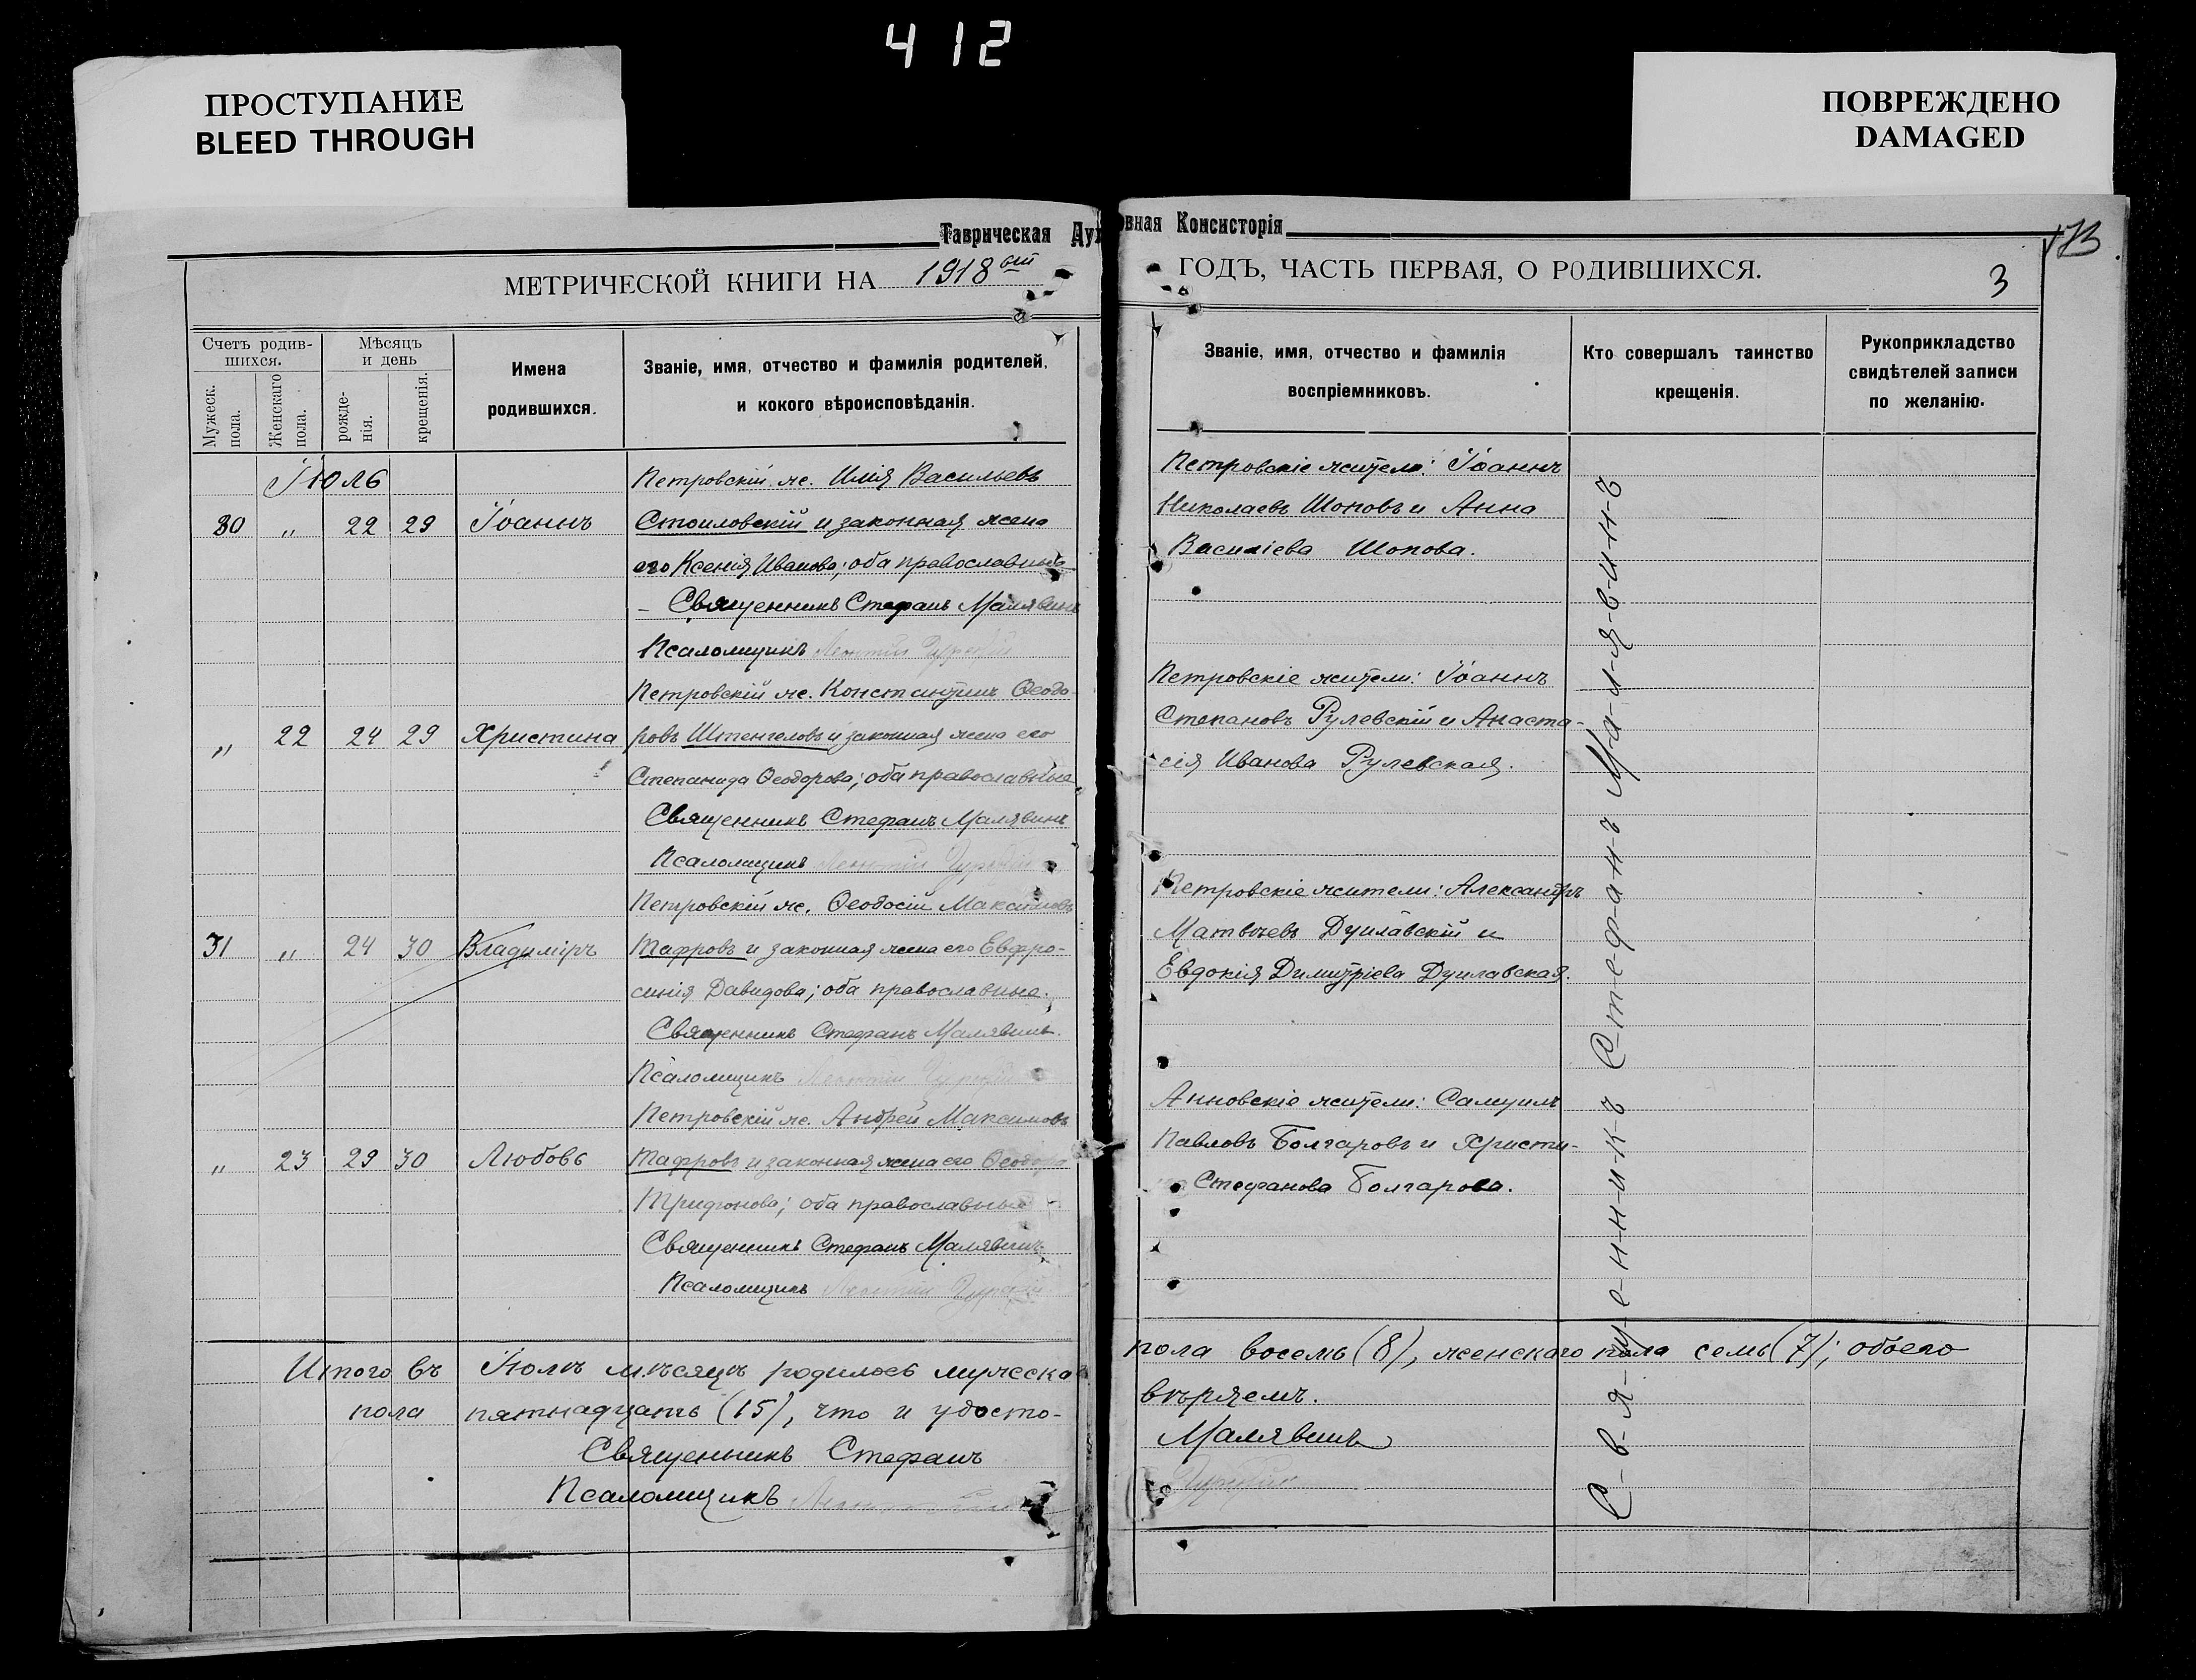 412
ПРОСТУПАНИЕ
BLEED THROUGH
ПОВРЕЖДЕНО
DAMAGED
Таврическая Дух
овная Консисторія
173
МЕТРИЧЕСКОЙ КНИГИ НА 1918 ый
ГОДЪ, ЧАСТЬ ПЕРВАЯ, О РОДИВШИХСЯ.
3
Счетъ родив-
шихся.
Мужеск.
пола.
Женскаго
пола.
Мѣсяцъ
и день
рожде-
нія.
крещенія.
Имена
родившихся.
Званіе, имя, отчество и фамилія родителей,
и кокого вѣроисповѣданія.
Званіе, имя, отчество и фамилія
воспріемниковъ.
Кто совершалъ таинство
крещенія.
Рукоприкладство
свидѣтелей записи
по желанію.
Іюль
Петровскій ж. Илія Васильевъ
30 " 22 29 Іоаннъ Стоиловскій и законная жена
его Ксенія Иванова; оба православные
Священникъ Стефанъ Малявинъ
Псаломщикъ Леонтій
Петровскій ж. Константинъ Ѳеодо-
" 22 24 29 Христина ровъ Штенгеловъ и законная жена его
Степанида Ѳеодорова; оба православные
Священникъ Стефанъ Малявинъ
Псаломщикъ Леонтій
Петровскій ж. Ѳеодосій Максимовъ
31 " 24 30 Владиміръ Тафровъ и законная жена его Евфро-
синія Давидова; оба православные.
Священникъ Стефанъ Малявинъ.
Псаломщикъ Леонтій
Петровскій ж. Андрей Максимовъ
" 23 29 30 Любовь Тафровъ и законная жена его Ѳеодора
Трифонова; оба православные
Священникъ Стефанъ Малявинъ
Псаломщикъ Леонтій
Петровскіе жители: Іоаннъ
Николаевъ Шоповъ и Анна
Василіева Шопова.
Петровскіе жители: Іоаннъ
Степановъ Рулевскій и Анаста-
сія Иванова Рулевская.
Петровскіе жители: Александръ
Матвѣевъ Дуилавскій и
Евдокія Димитріева Дуилавская.
Анновскіе жители: Самуилъ
Павловъ Болгаровъ и Христи-
Стефанова Болгарова.
С-в-я-щ-е-н-н-и-к-ъ С-т-е-ф-а-н-ъ М-а-л-я-в-и-н-ъ
Итого въ Іюлѣ мѣсяцѣ родилось мужеска
пола восемь (8), женскаго пола семь (7); обоего
пола пятнадцать (15), что и удосто-
вѣряемъ.
Священникъ Стефанъ
Малявинъ
Псаломщикъ